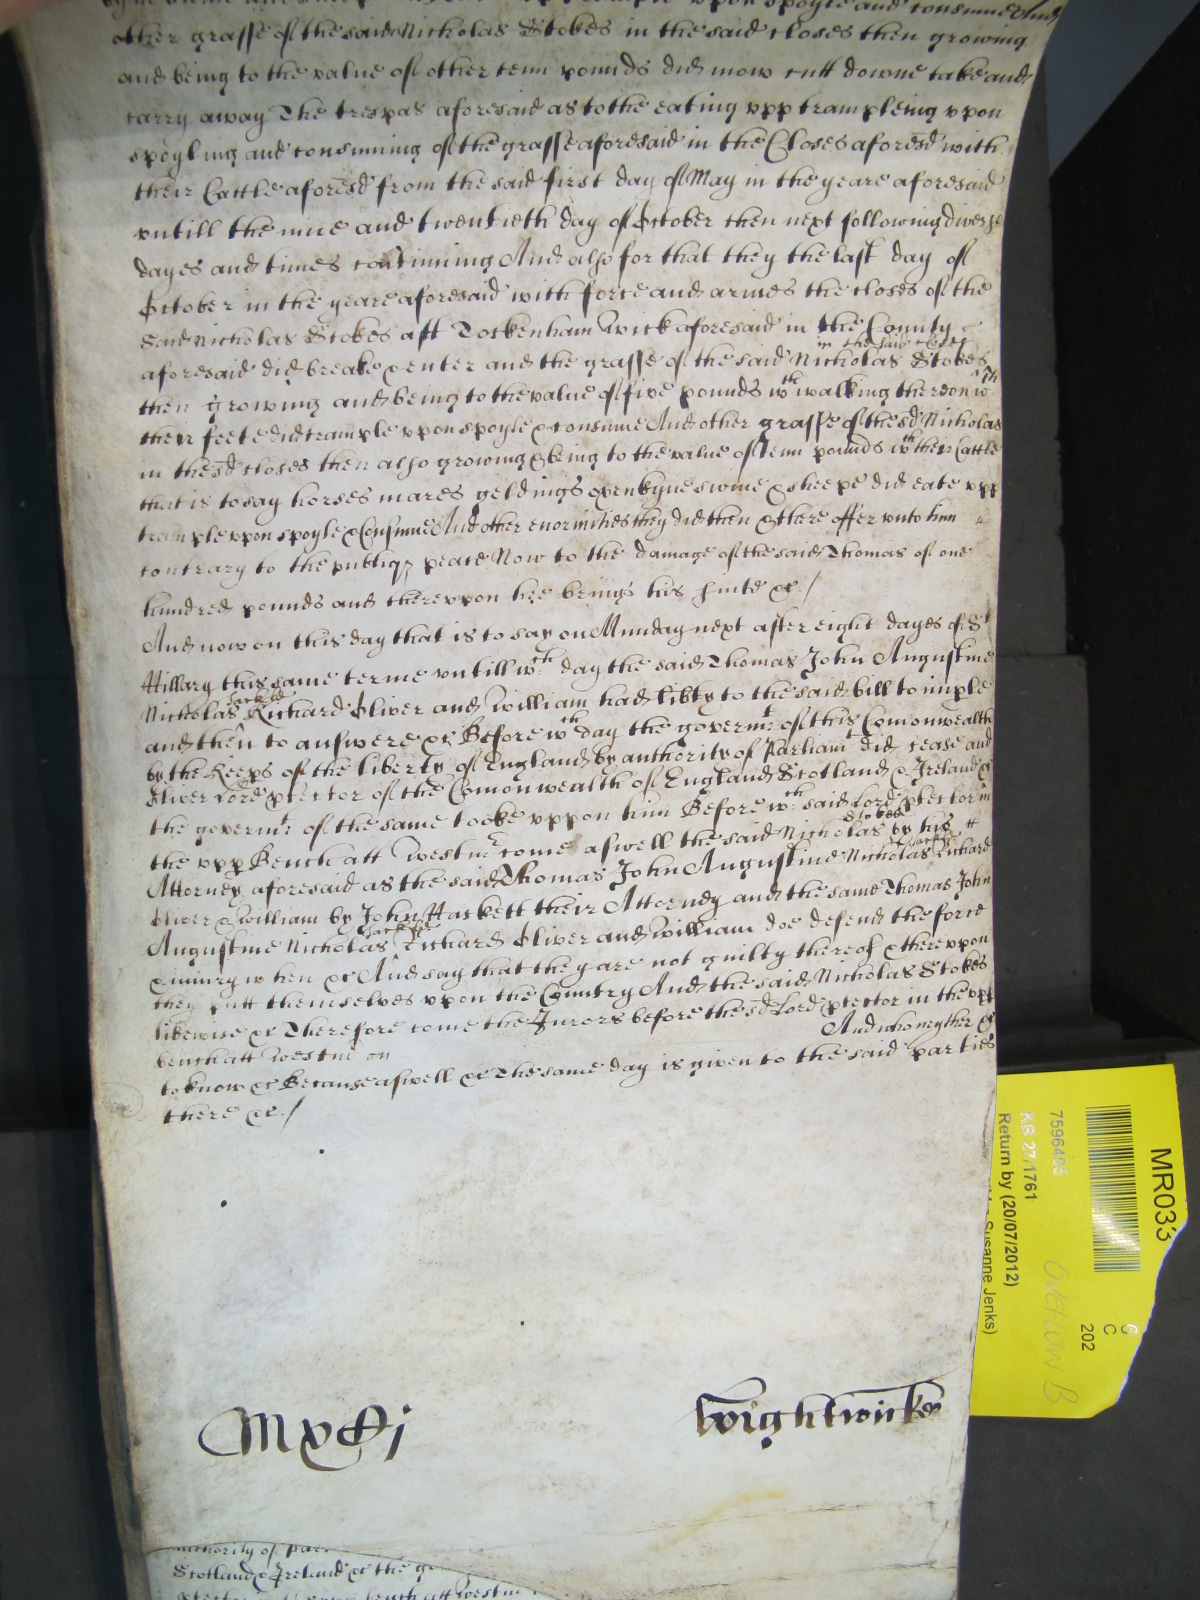 upon spoyle and consume And
other grasse of the said Nicholas Stokes in the said closes then growing
and being to the value of other tenn pounds did mow cutt downe take and
carry away The trespas aforesaid as to the eating upp trampleing upon
spoyling and consuming of the grasse aforesaid in the Closes aforesd with
their Cattle aforesd from the said first day of May in the yeare aforesaid
untill the nine and twentieth day of October then next following divers
dayes and times continuing And also for that they the last day of
October in the yeare aforesaid with force and armes the closes of the
said Nicholas Stokes att Tockenham Wick aforesaid in the County
in the said closes
aforesaid did breake & enter and the grasse of the said Nicholas Stokes
then growing and being to the value of five pounds wth walking thereon wth
their feete did trample upon spoyle & consume And other grasse of the sd Nicholas
in the sd closes then also growing & being to the value of tenn pounds wth their Cattle
that is to say horses mares geldings oxen kyne swine & sheepe did eate upp
trample upon spoyle & consume And other enormities they did then & there offer unto him
contrary to the publiq peace Now to the damage of the said Thomas of one
hundred pounds and thereupon hee brings his suite &c /
And now on this day that is to say on Munday next after eight dayes of St
Hillary this same terme untill wch day the said Thomas John Augustine
Jacob
Nicholas Richard Oliver and William had libty to the said bill to imple
and then to answere &c Before wch day the governmt of this Comonwealth
by the Keeps of the liberty of England by authority of Parliamt did cease and
Oliver Lord ptector of the Comonwealth of England Scotland & Ireland &c
the governmt of the same tooke uppon him Before wch said Lord ptector in
Stokes
the upp Bench att Westmr come aswell the said Nicholas by his
Attorney aforesaid as the said Thomas John Augustine Nicholas Richard
Oliver & William by John Hackett their Attorney and the same Thomas John
Augustine Nicholas Richard Oliver and William doe defend the force
& iniury when &c And say that they are not guilty thereof & thereupon
they putt themselves upon the Country And the said Nicholas Stokes
likewise &c Therefore come the Jurors before the sd Lord ptector in the upp
bench att Westmr on And who neyther &c
to know &c Because aswell &c The same day is given to the said parties
there &c /
Wightwicke
authority of Par
Scotland & Ireland &c the go
ptector in the upp bench att Westm
MR033
7596495
KB 27/1761
Return by (20/07/2012)
Susanne Jenks)
6
C
202
OVERFLOW B